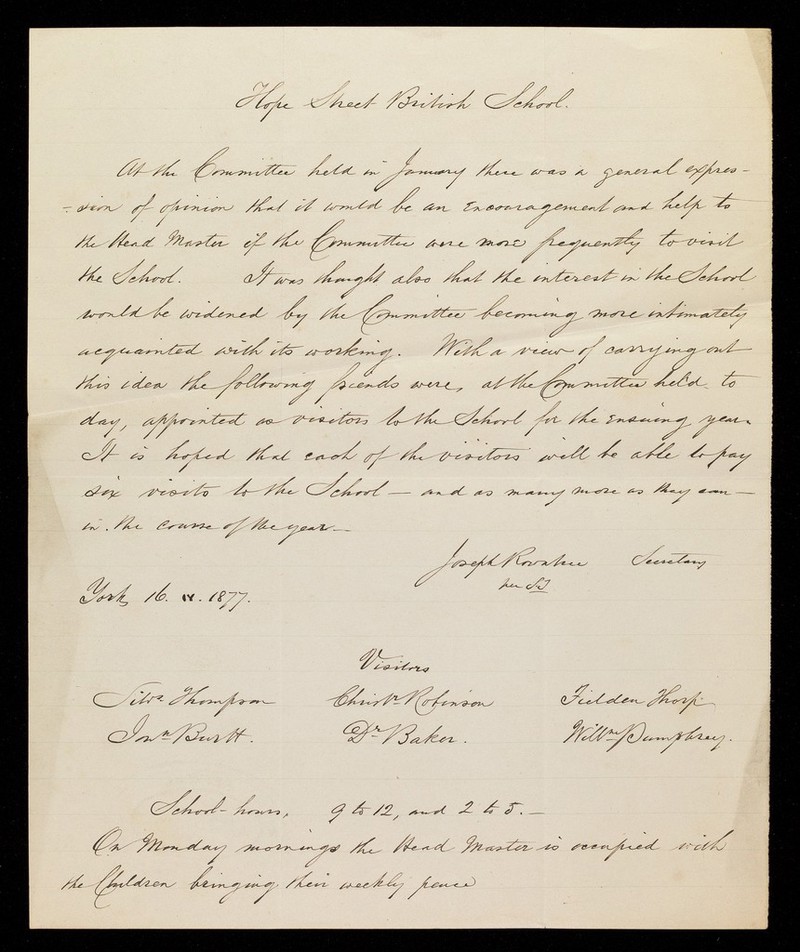 Hope Street British School.
At the Committee held in January there was a general expres-
-sion of opinion that it would be an encouragement and help to
the Head Master if the Committee were more frequently to visit
the School. It was thought also that the interest in the School
would be widened by the Committee becoming more intimately
acquainted with its working. With a view of carrying out
this idea the following friends were, at the Committee held to
day, appointed as visitors to the School for the ensuing year.
It is hoped that each of the visitors will be able to pay
six visits to the School — and as many more as they can —
in the course of the year —
Joseph Rowntree Secretary
York, 16. 1877.
Visitors
Silvs Thompson Christr Robinson Fielden Thorp
Jnn Burtt. Dr Baker. Willm Pumphrey.
School-hours, 9 to 12, and 2 to 5. —
On Monday mornings the Head Master is occupied with
the Children bringing their weekly pence